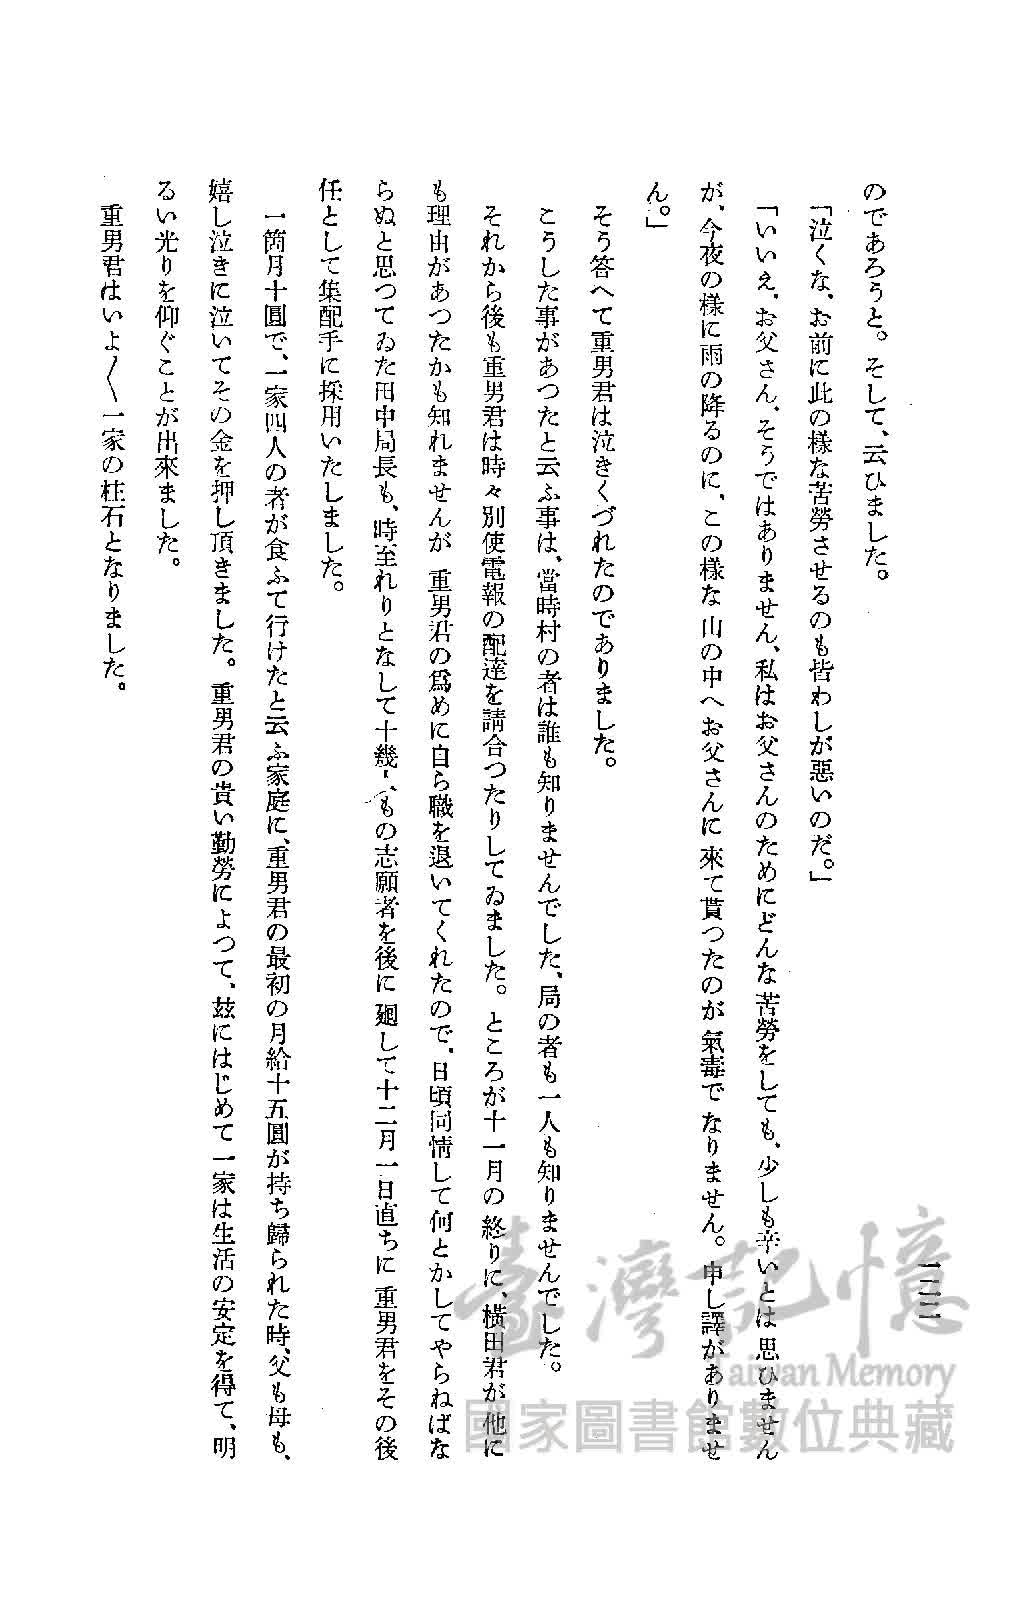 のであろうと。そして、云ひました。
「泣くな、お前に此の樣な苦勞させるのも皆わしが惡いのだ。」
「いいえ、お父さん、そうではありません、私はお父さんのためにどんな苦勞をしても、少しも辛いとは思ひません
が、今夜の樣に雨の降るのに、この樣な山の中へお父さんに來て貰つたのが氣毒でなりません。申し譯がありませ
ん。」
そう答へて重男君は泣きくづれたのでありました。
こうした事があつたと云ふ事は、當時村の者は誰も知りませんでした、局の者も一人も知りませんでした。
それから後も重男君は時々別使電報の配達を請合つたりしてゐました。ところが十一月の終りに、橫田君が他に
も理由があつたかも知れませんが 重男君の爲めに自ら職を退いてくれたので、日頃同情して何とかしてやらねばな
らぬと思つてゐた田中局長も、時至れりとなして十幾人もの志願者を後に廻して十二月一日直ちに重男君をその後
任として集配手に採用いたしました。
一箇月十圓で、一家四人の者が食ふて行けたと云ふ家庭に、重男君の最初の月給十五圓が持ち歸られた時、父も母も、
嬉し泣きに泣いてその金を押し頂きました。重男君の貴い勤勞によつて、玆にはじめて一家は生活の安定を得て、明
るい光りを仰ぐことが出來ました。
重男君はいよ〱一家の柱石となりました。
一二二
臺灣記憶
Taiwan Memory
國家圖書館數位典藏